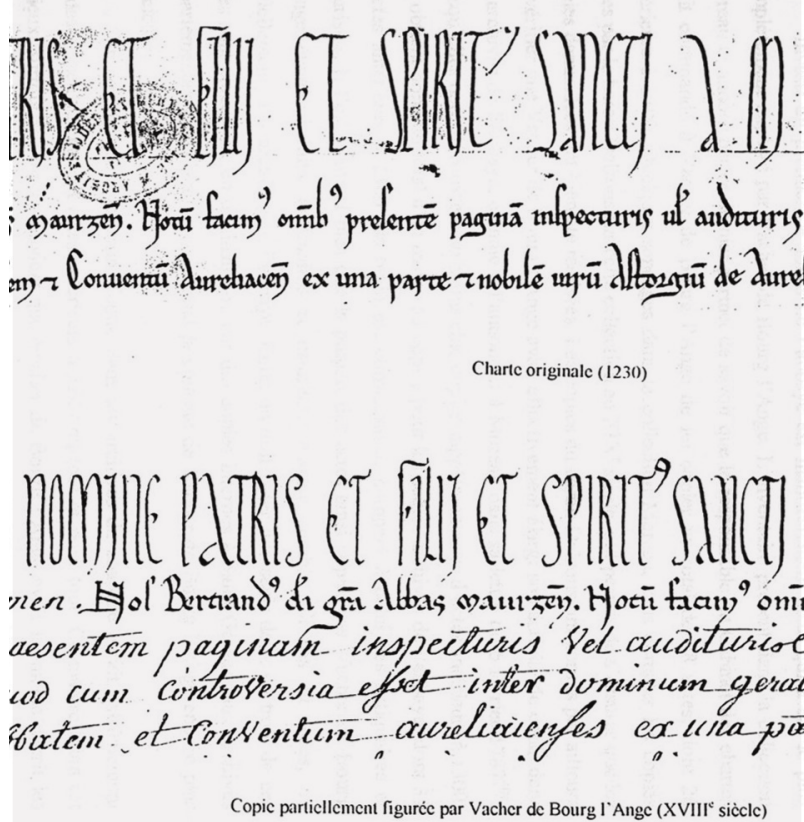 RIS ET FILII ET SPIRIT' SANCTI A M
maurzen̄. Notū facim⁹ om̄ib⁹ presentē paginā inspecturis ul' audituris
em ⁊ Conuentū Aureliacen̄ ex una parte ⁊ nobilē uirū Astorgiū de Aurel
Charte originale (1230)
NOMINE PATRIS ET FILII ET SPIRIT⁹ SANCTI
men. Nos Bertrand⁹ di gr̄a Abbas maurzen̄. Notū facim⁹ omi
aesentem paginam inspecturis vel audituris
uod cum Controversia esset inter dominum gerau
bbatem et Conventum aureliacenses ex una pa
Copie partiellement figurée par Vacher de Bourg l'Ange (XVIIIᵉ siècle)